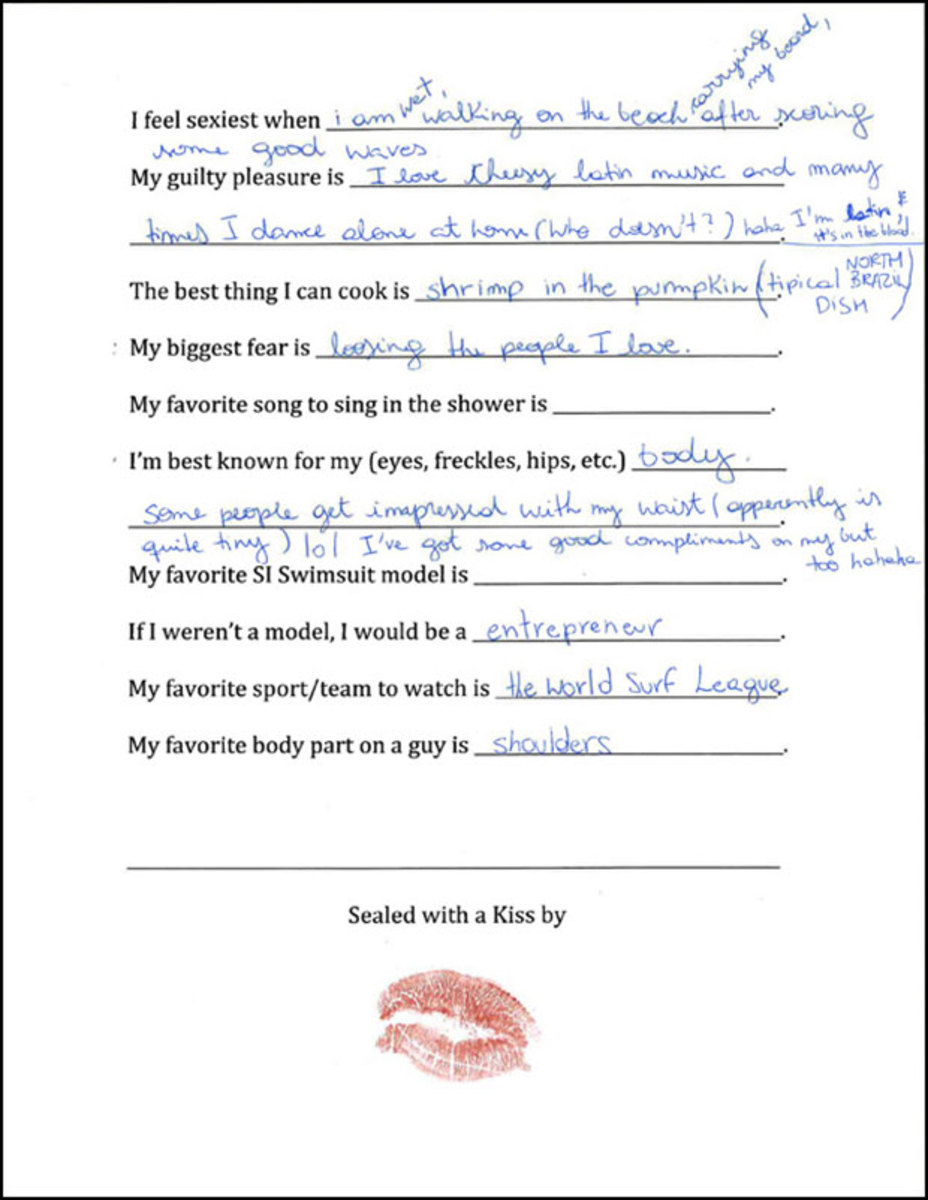 I feel sexiest when i am wet, walking on the beach carrying my board, after scoring
some good waves
My guilty pleasure is I love cheesy latin music and many
times I dance alone at home (who doesn't?) haha. I'm latin & it's in the blood.
The best thing I can cook is shrimp in the pumpkin (tipical NORTH BRAZIL DISH)
My biggest fear is loosing the people I love.
My favorite song to sing in the shower is ____________.
I'm best known for my (eyes, freckles, hips, etc.) body.
some people get imapressed with my waist (apperently is
quite tiny) lol I've got some good compliments on my but
too hahaha
My favorite SI Swimsuit model is ____________.
If I weren't a model, I would be a entrepreneur.
My favorite sport/team to watch is the World Surf League.
My favorite body part on a guy is shoulders.
Sealed with a Kiss by